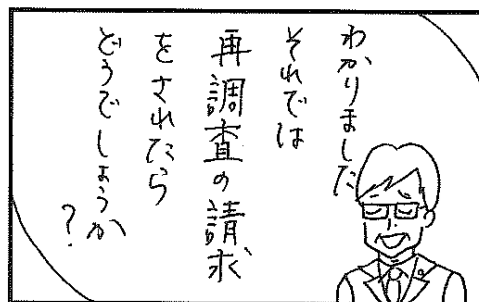 わかりました
それでは
再調査の請求
をされたら
どうでしょうか
?